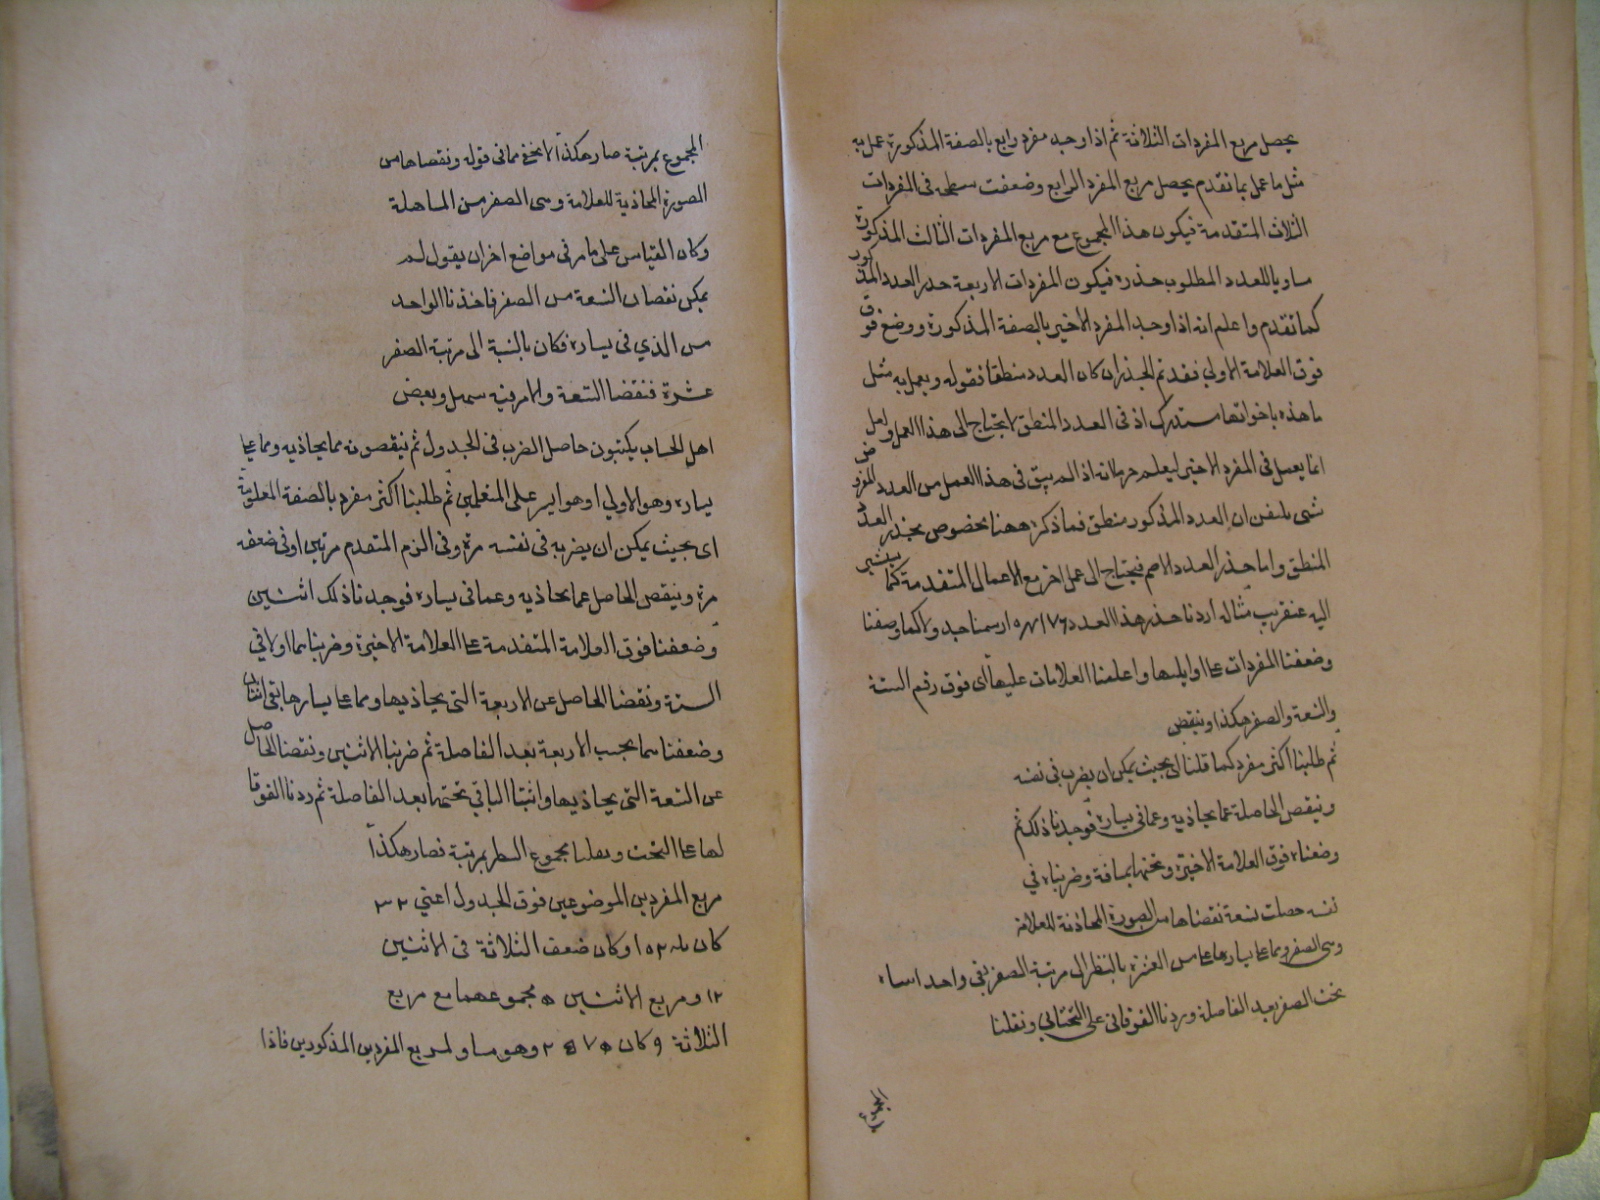 يحصل مربع المفردات الثلاثة ثم اذا وجد مفرد رابع بالصفة المذكورة عمل به
مثل ما عمل بما تقدم يحصل مربع المفرد الرابع وضعفت سطحه فى المفردات
الثلاث المتقدمة فيكون هذا المجموع مع مربع المفردات الثالث المذكورة
مساويا للعدد المطلوب جذره فيكون المفردات الاربعة جذر العدد المذكور
كما تقدم واعلم انه اذا وجد المفرد الاخير بالصفة المذكورة ووضع فوق
فوق العلامة الاولي فقد تم الجذر ان كان العدد منطقا فقوله ويعمل به مثل
ما هذه باخواتها مستدرك اذ فى العدد المنطق لا يحتاج الى هذا العمل ولعل
انما يعمل فى المفرد الاخير ليعلم حرمانه اذ الم يبق فى هذا العمل من العدد المفروض
شى ان العدد المذكور منطق فما ذكره ههنا مخصوص بجذر العدد
المنطق واما جذر العدد الاصم فيحتاج الى عمل اخر مع الاعمال المتقدمة كما سيشير
اليه عنقريب مثاله أردنا جذر هذا العدد رسمنا جدولا كما وصفنا
وضعفنا المفردات على اوايلها واعلمنا العلامات عليها اى فوق رقم الستة
والتسعة والصفر هكذا وينقص
ثم طلبنا اكثر مفرد كما قلنا اى بحيث يمكن ان يضرب فى نفسه
وينقص الحاصلة عما يحاذيه وعما فى يساره فوجدناه ذلك ثم
وضعناه فوق العلامة الاخيرة وتحتها بمسافة وضربناه في
نفسه حصلت تسعة نقصناها من الصورة المحاذية للعلامة
وهى الصفر ومما على يسارها على من العشرة بالنظر الى مرتبة الصفر بقى واحد
تحت الصفر بعد الفاصلة وزدنا الفوقانى على التحتانى ونقلنا
المجموع
المجموع بمرتبة صار هكذا لا يخفى مافى قوله ونقصناها من
الصورة المحاذية للعلامة وهى الصفر من المساهلة
وكان القياس على ما مر فى مواضع اخر ان يقول لم
يمكن نقصان التسعة من الصفر فاخذنا الواحد
من الذي فى يساره فكان بالنسبة الى مرتبة الصفر
عشرة فنقصنا التسعة والامر فيه سهل وبعض
اهل الحساب يكتبون حاصل الضرب فى الجدول ثم ينقصونه مما يحاذيه ومما على
يساره وهو الاولي اوهو ايسر على المتعلمين ثم طلبنا اكثر مفرد بالصفة المعلومة
اى بحيث يمكن ان يضربه فى نفسه مرة وفى الزم المتقدم مرتين او فى ضعفه
مرة وينقص الحاصل عما يحاذيه وعما فى يساره فوجدنا ذلك اثنين
وضعفنا فوق العلامة المتقدمة على العلامة الاخيرة وضربناهما اولا في
الستة ونقصنا الحاصل عن الاربعة التى يحاذيها ومما على يسارها بقى اثنتان
وضعفناهما بجنب الاربعة بعد الفاصلة ثم ضربنا الاثنين ونقصنا الحاصل
عن التسعة التى يحاذيها واثبتنا الباقي تحتها بعد الفاصلة ثم زدنا الفوقا
لها على التحت ونقلنا مجموع السطر بمرتبة فصار هكذا
مربع المفردين الموضوعين فوق الجدول اعني ٣٢
كان وكان ضعف الثلاثة فى الاثنين
١٢ ومربع الاثنين ۴ مجموعهما مع مربع
الثلاثة ٩ كان وهو مساو لمربع المفردين المذكورين فاذا